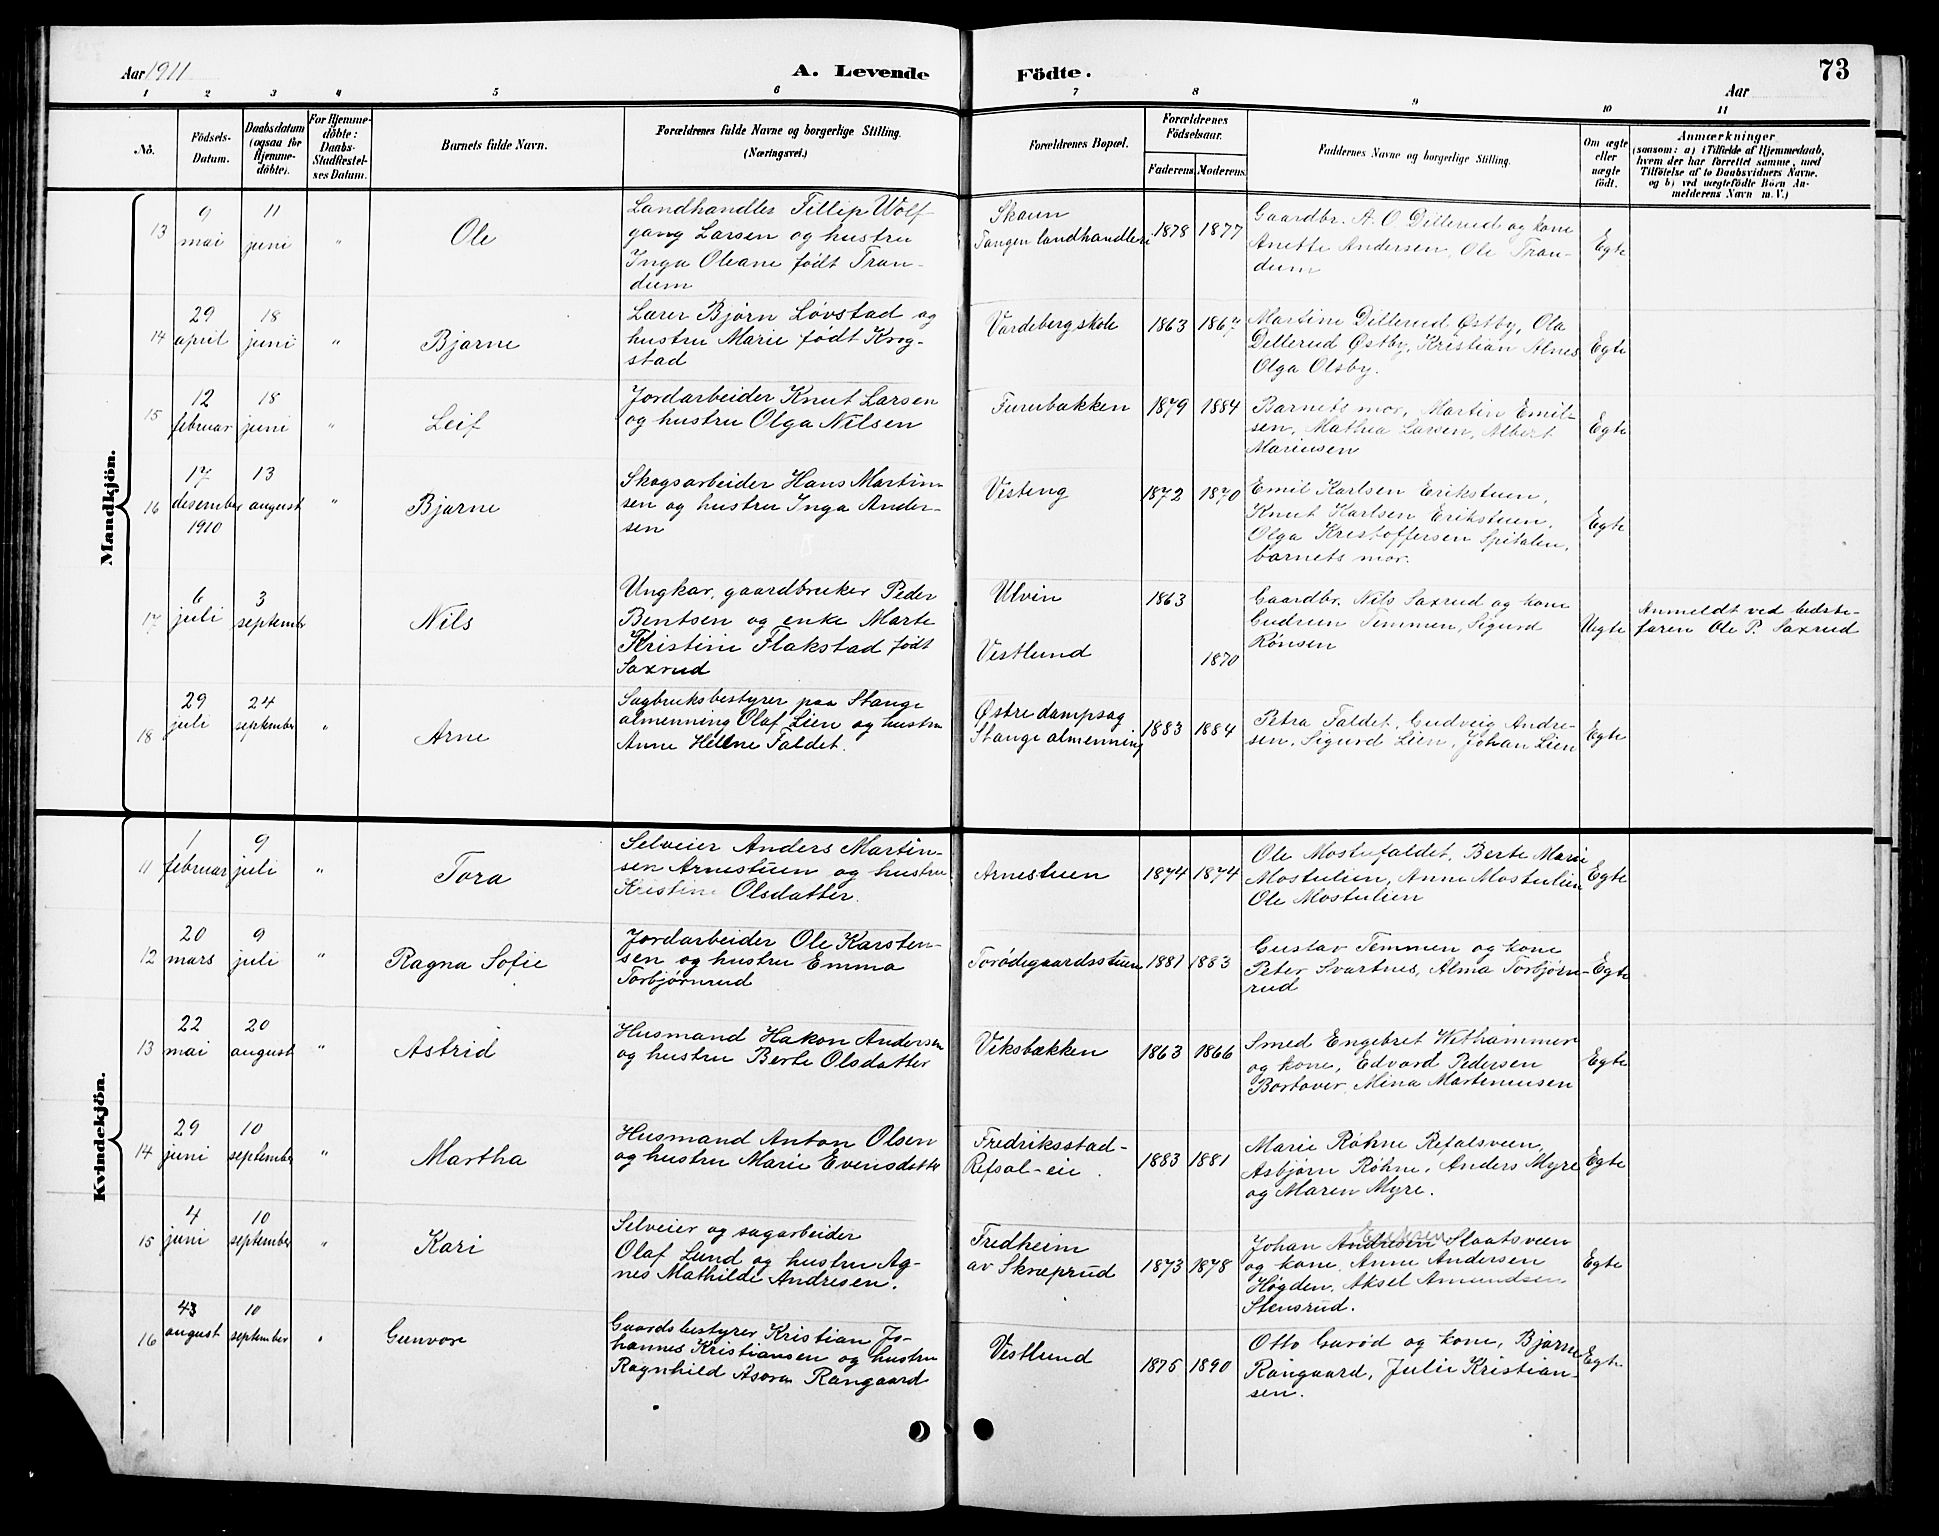 Aar 1911
A. Levende
Födte.
73
Aar
1 2 3 4 5 6 7 8 9 10 11
No.
Födsels-
Datum.
Daabsdatum
(ogsaa for
Hjemme-
döbte).
For Hjemme-
döbte:
Daabs-
Stadfæstel-
ses Datum.
Barnets fulde Navn.
Forældrenes fulde Navne og borgerlige Stilling.
(Næringsvei.)
Forældrenes Bopæl.
Forældrenes
Födselsaar.
Faderens. Moderens.
Faddernes Navne og borgerlige Stilling.
Om ægte
eller
uægte
født.
Anmærkninger
(saasom: a) i Tilfælde af Hjemmedaab,
hvem der har forrettet samme, med
Tilföielse af to Daabsvidners Navne.
og b) ved uægtefödte Börn An-
melderens Navn m. V.)
Mandkjön.
13
9
mai
11
juni
"
Ole
Landhandler Fillip Wolf-
gang Larsen og hustru
Inga Oleane født Tran-
dum
Skaun
Tangen landhandleri
1878 1877
Gaardbr. A. O. Dillerud og kone
Anette Andersen, Ole Tran-
dum
Egte
14
29
april
18
juni
"
Bjarne
Lærer Bjørn Løvstad og
hustru Marie født Krog-
stad
Vardeberg skole
1863 1867
Martine Dillerud Østby, Ola
Dillerud Østby, Kristian Alnes
Olga Olsby.
Egte
15
12
februar
18
juni
"
Leif
Jordarbeider Knut Larsen
og hustru Olga Nilsen
Furubakken
1879 1884
Barnets mor, Martin Emil-
sen, Mathea Larsen, Albert
Mariusen
Egte
16
17
desember
1910
13
august
"
Bjarne
Skogsarbeider Hans Martin-
sen og hustru Inga Ander-
sen
Vesteng
1872 1870
Emil Karlsen Erikstuen,
Knut Karlsen Erikstuen,
Olga Kristoffersen Spitalen,
barnets mor.
Egte
17
6
juli
3
septembr
Nils
Ungkar, gaardbruker Peder
Bentsen og enke Marte
Kristine Flakstad født
Saxrud
Ulvin
1863
Vestlund
1870
Gaardbr. Nils Saxrud og kone
Gudrun Temmen, Sigurd
Rønsen
Uegte
Anmeldt ved bedste-
faren Ole P. Saxrud
18
29
juli
24
september
"
Arne
Sagbruksbestyrer paa Stange
almenning Olaf Lien og hustru
Anne Helene Faldet.
Østre dampsag
Stange almenning
1883 1884
Petra Faldet, Gudveig Andre-
sen, Sigurd Lien, Johan Lien
Egte
Kvindekjön.
11
1
februar
9
juli
"
Tora
Selveier Anders Martin-
sen Arnestuen og hustru
Kristine Olsdatter.
Arnestuen
1874 1874
Ole Mostufaldet, Berte Marie
Mostulien, Anna Mostulien
Ole Mostulien
Egte
12
20
mars
9
juli
"
Ragna Sofie
Jordarbeider Ole Karsten-
sen og hustru Emma
Torbjørnrud
Torødegaardsstuen
1881 1883
Gustav Temmen og kone
Peter Svartnes, Alma Torbjørn-
rud
Egte
13
22
mai
20
august
"
Astrid
Husmand Hakon Andersen
og hustru Berte Olsdatter
Viksbakken
1863 1866
Smed Engebret Wethammer
og kone, Edvard Pedersen
Bortover, Mina Martiniusen
Egte
14
29
juni
10
september
"
Martha
Husmand Anton Olsen
og hustru Marie Evensdatter
Fredriksstad-
Refsal-eie.
1883 1881
Marie Røhne Refalsveen,
Asbjørn Røhne, Anders Myre
og Maren Myre.
Egte
15
4
juni
10
september
"
Kari
Selveier og sagarbeider
Olaf Lund og hustru Ag-
nes Mathilde Andresen.
Fredheim
av Skræprud
1873 1878
Johan Andresen Slaatsveen
og kone, Anne Andersen
Høgden, Aksel Amundsen
Stensrud.
Egte
16
43
august
10
september
"
Gunvor
Gaardsbestyrer Kristian Jo-
hannes Kristiansen og hustru
Ragnhild Asora Rangaard
Vestlund
1875 1890
Otto Garød og kone, Bjarne
Rangaard, Julie Kristian-
sen.
Egte